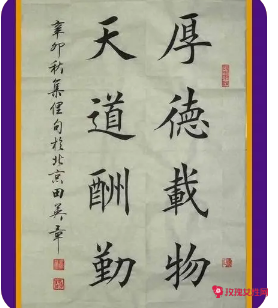 厚德載物
天道酬勤
辛卯秋集俚句於北京田英章
玫瑰女性网